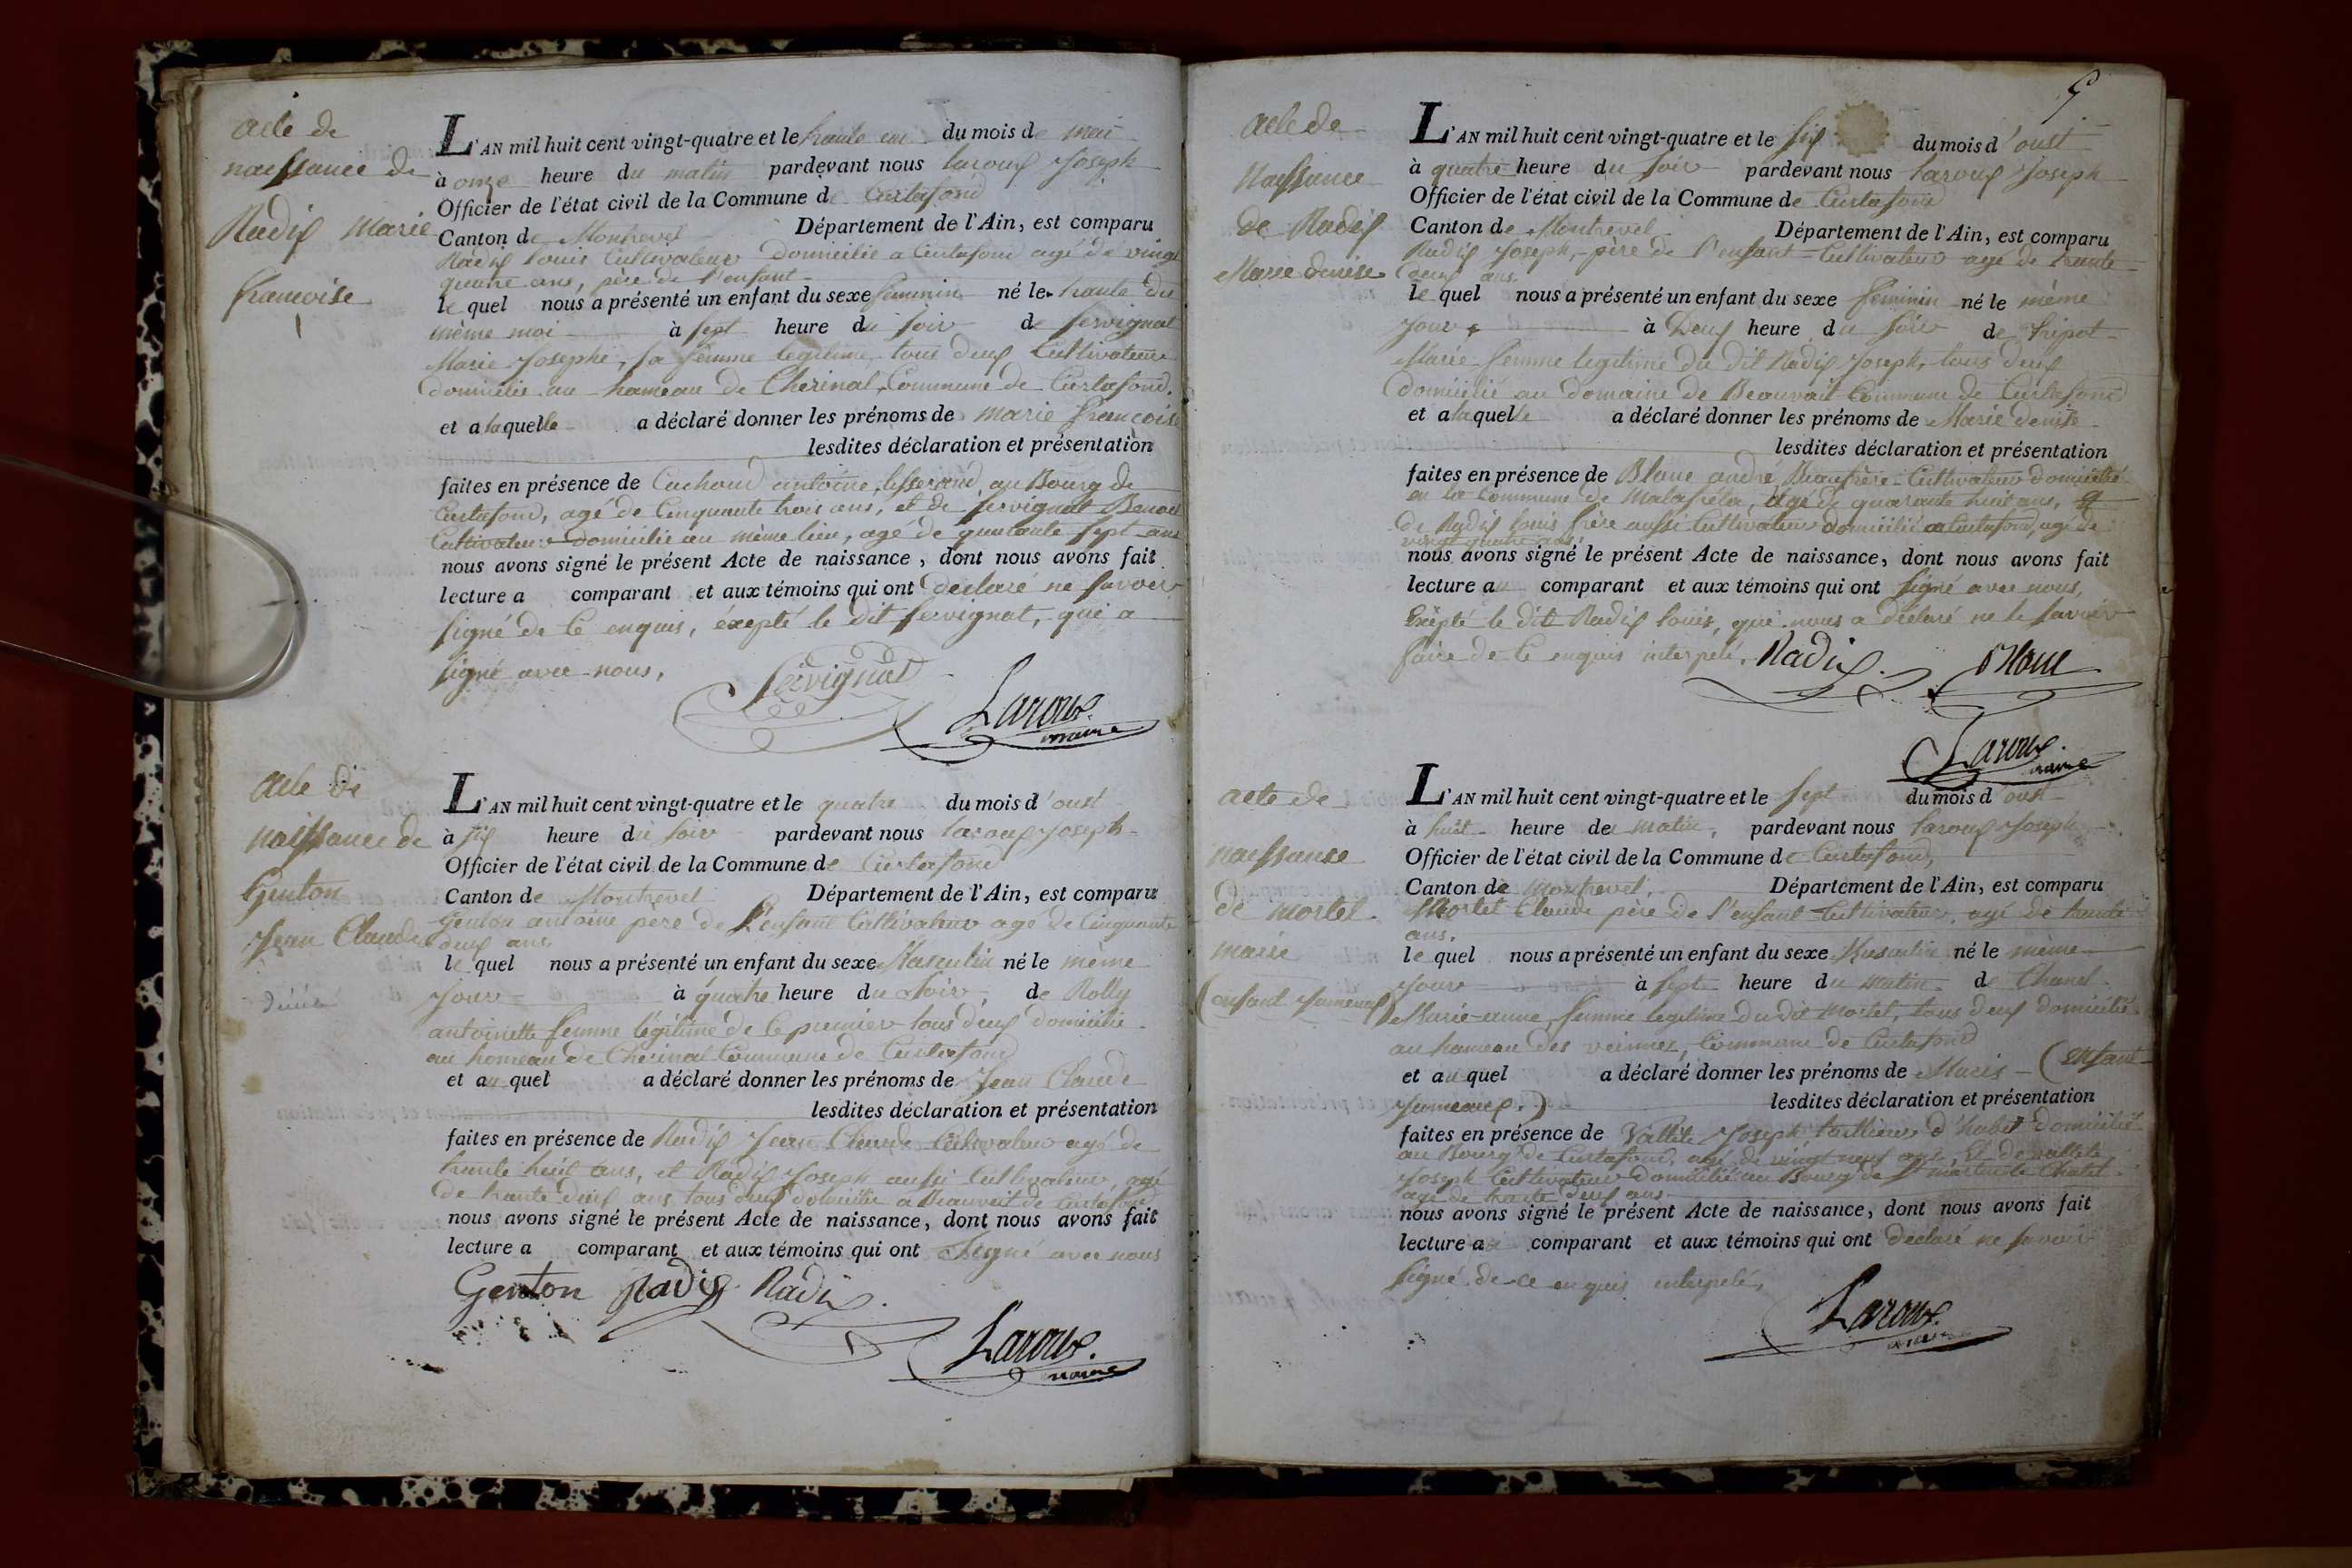 acte de
naissance de
Radix Marie
francoise
L'AN mil huit cent vingt-quatre et le trante un du mois de mai
à onze heure du matin pardevant nous laroux Joseph
Officier de l'état civil de la Commune de Curtafond
Canton de Montrevel Département de l'Ain, est comparu
Radix louis Cultivateur domicilié a Curtafond agé de vingt
quatre ans, père de l'enfant
le quel nous a présenté un enfant du sexe feminin né le trante du
même moi à sept heure du soir de servignat
Marie Josephe, sa femme legitime, tous deux Cultivateur
domicilié au hameau de Cherinal, Commune de Curtafond.
et a laquelle a déclaré donner les prénoms de marie francoise
lesdites déclaration et présentation
faites en présence de Cachoud antoine, tisserand, au Bourg de
Curtafond, agé de Cinquante trois ans, et de servignat Benoit
Cultivateur domicilié au même lieu, agé de quarante sept ans
nous avons signé le présent Acte de naissance, dont nous avons fait
lecture a comparant et aux témoins qui ont declaré ne savoir
signé de ce enquis, éxepté le dit servignat, qui a
signé avec nous,
Servignat
Laroux
maire
acte de
naissance de
Genton
Jean Claude
L'AN mil huit cent vingt-quatre et le quatre du mois d'oust
à six heure du soir pardevant nous laroux Joseph
Officier de l'état civil de la Commune de Curtafond
Canton de Montrevel Département de l'Ain, est comparu
Genton antoine pere de l'enfant Cultivateur agé de Cinquante
deux ans,
le quel nous a présenté un enfant du sexe Masculin né le même
Jour à quatre heure du soir, de Rolly
antoinette femme légitime de ce premier tous deux domicilié
au homeau de Cherinal Commune de Curtafond
et au quel a déclaré donner les prénoms de Jean Claude
lesdites déclaration et présentation
faites en présence de Radix Jean Claude Cultivateur agé de
trante huit ans, et Radix Joseph aussi Cultivateur, agé
de trante deux ans tous deux domicilié a Beauvait de Curtafond
nous avons signé le présent Acte de naissance, dont nous avons fait
lecture a comparant et aux témoins qui ont signé avec nous
Genton Radix Radix
Laroux.
maire
acte de
Naissance
de Radix
Marie denise
L'AN mil huit cent vingt-quatre et le six du mois d'oust
à quatre heure du soir pardevant nous laroux Joseph
Officier de l'état civil de la Commune de Curtafond
Canton de Montrevel Département de l'Ain, est comparu
Radix Joseph, père de l'enfant Cultivateur agé de trante
deux ans.
le quel nous a présenté un enfant du sexe feminin né le même
Jour à Deux heure du soir de fripot
Marie femme legitime du dit Radix Joseph, tous deux
domicilié au domaine de Beauvait Commune de Curtafond
et a laquelle a déclaré donner les prénoms de Marie denise
lesdites déclaration et présentation
faites en présence de Blanc andré Beaufrère Cultivateur domicilié
en la Commune de Malafreta, agé de quarante huit ans, et
de Radix louis frère aussi Cultivateur domicilié a Curtafond, agé de
vingt quatre ans,
nous avons signé le présent Acte de naissance, dont nous avons fait
lecture au comparant et aux témoins qui ont signé avec nous,
Exépté le dit Radix louis, qui nous a déclaré ne le savoir
faire de ce enquis interpelé. Radix. Blanc
Laroux.
maire
acte de
naissance
de mortel
marie
(enfant Jumeaux)
L'AN mil huit cent vingt-quatre et le sept du mois d oust
à huit heure de matin, pardevant nous laroux Joseph
Officier de l'état civil de la Commune de Curtafond,
Canton de Montrevel, Département de l'Ain, est comparu
Mortel Claude père de l'enfant Cultivateur, agé de trante
ans.
le quel nous a présenté un enfant du sexe Masculin né le même
Jour à sept heure du matin de Chanel
Marie-anne, femme legitime du dit Mortel, tous deux domicilié
au hameau des Commune de Curtafond
et au quel a déclaré donner les prénoms de Marie (enfant
Jumeaux.) lesdites déclaration et présentation
faites en présence de Vallete Joseph taillieur d'habit domicilié
au Bourg de Curtafond, agé de vingt neuf ans, et de vallete
Joseph Cultivateur domicilié au Bourg de St martin le Chatel
agé de trante deux ans
nous avons signé le présent Acte de naissance, dont nous avons fait
lecture a comparant et aux témoins qui ont declaré ne savoir
signé de ce enquis interpelé,
Laroux.
maire